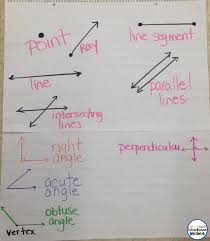 point
ray
line segment
line
parallel
lines
intersecting
lines
right
angle
perpendicular
acute
angle
obtuse
angle
vertex